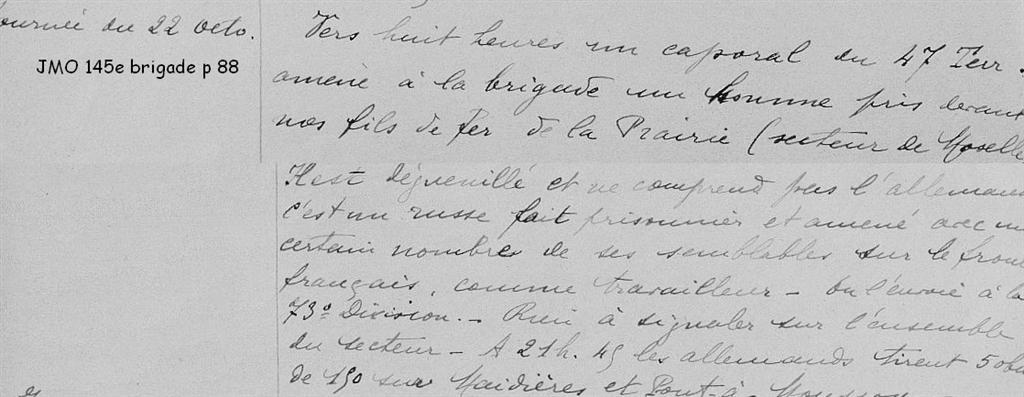 Journée du 22 Octo.
JMO 145e brigade p 88
Vers huit heures un caporal du 47 Terr.
amène à la brigade un homme pris devant
nos fils de fer de la Prairie (secteur de Moselle
Il est déguenillé et ne comprend pas l'allemand
c'est un russe fait prisonnier et amené avec un
certain nombre de ses semblables sur le front
français, comme travailleur - On l'envoie à la
73e Division. - Rien à signaler sur l'ensemble
du secteur - A 21h. 45 les allemands tirent 5 obus
de 150 sur Maidières et Pont-à-Mousson